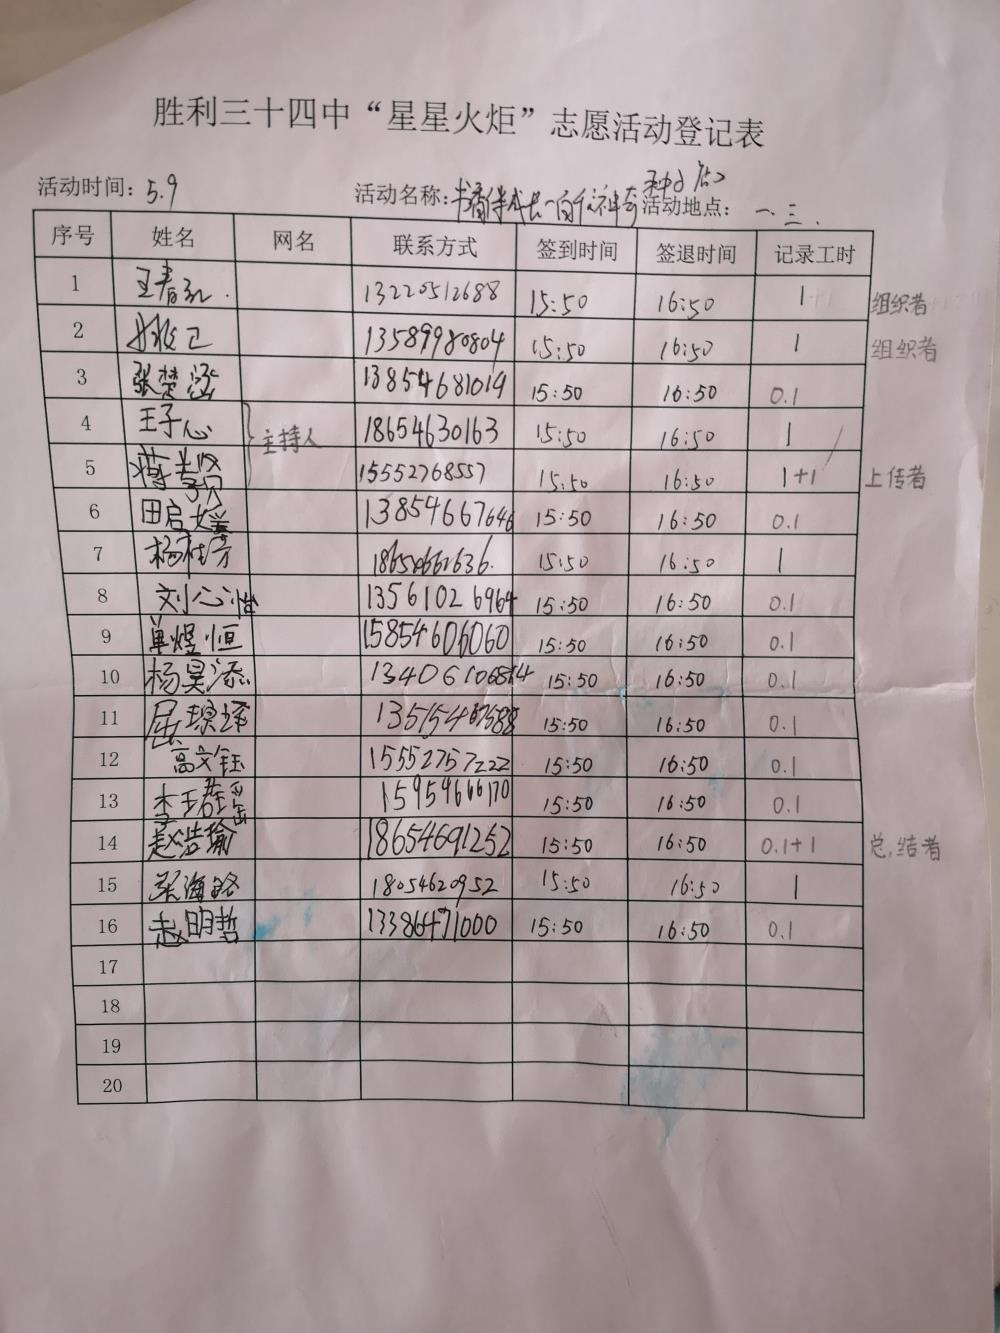 胜利三十四中“星星火炬”志愿活动登记表
活动时间：5.9 活动名称：书香伴成长 活动地点：一.三.
序号 姓名 网名 联系方式 签到时间 签退时间 记录工时
1 13220512688 15:50 16:50 1 组织者
2 13589980804 15:50 16:50 1 组织者
3 张楚涵 13854681019 15:50 16:50 0.1
4 王子心 主持人 18654630163 15:50 16:50 1
5 15552768557 15:50 16:50 1+1 上传者
6 田启 13854667646 15:50 16:50 0.1
7 15:50 16:50 1
8 刘心怡 13561026964 15:50 16:50 0.1
9 单煜恒 15854606060 15:50 16:50 0.1
10 杨昊添 15:50 16:50 0.1
11 屈 15:50 16:50 0.1
12 高文钰 15552757222 15:50 16:50 0.1
13 李 15954666170 15:50 16:50 0.1
14 赵浩瑜 18654691252 15:50 16:50 0.1+1 总结者
15 张海路 18054620952 15:50 16:50 1
16 赵明哲 13386471000 15:50 16:50 0.1
17
18
19
20